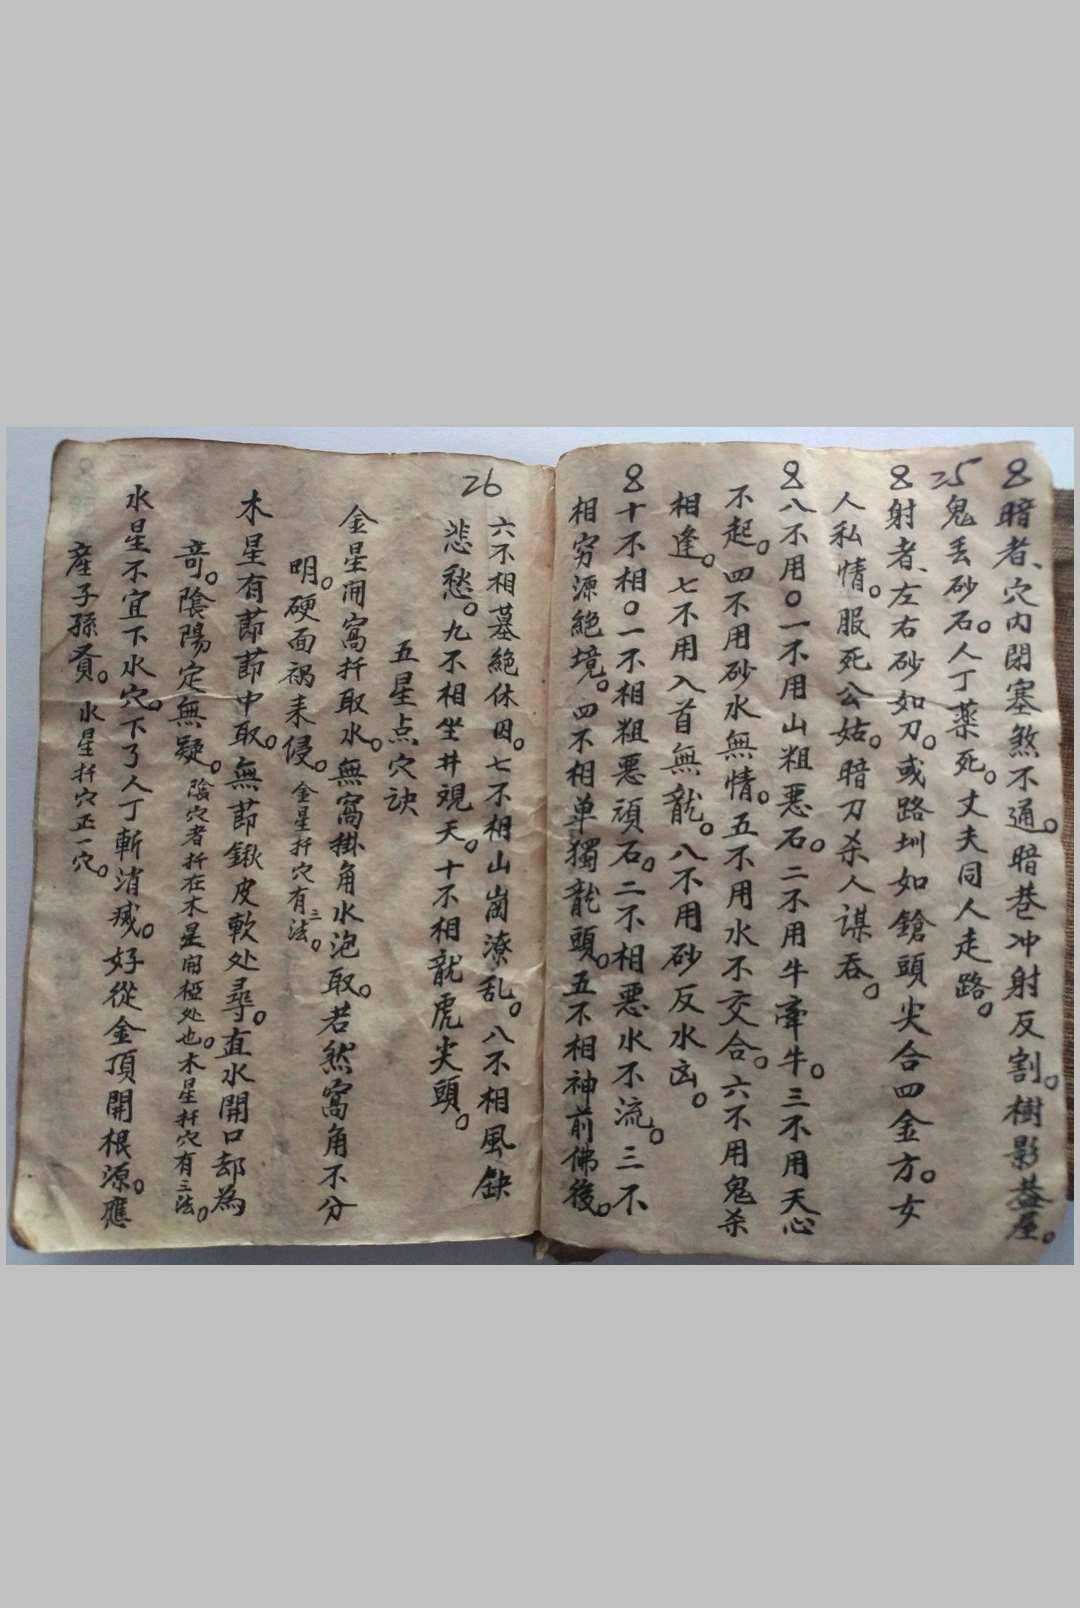 暗者、穴内閉塞煞不通。暗巷冲射反割。樹影蓋屋。
25
鬼丢砂石。人丁薬死。丈夫同人走路。
射者、左右砂如刀。或路圳如鎗頭尖合四金方。女
人私情。服死公姑。暗刀杀人謀吞。
八不用。一不用山粗悪石。二不用牛牽牛。三不用天心
不起。四不用砂水無情。五不用水不交合。六不用鬼杀
相逢。七不用入首無龍。八不用砂反水凶。
十不相。一不相粗悪頑石。二不相悪水不流。三不
相穷源絕境。四不相单獨龍頭。五不相神前佛後。
26
六不相墓絕休囚。七不相山崗潦乱。八不相風缺
悲愁。九不相坐井观天。十不相龍虎尖頭。
五星点穴诀
金星開窩扦取水。無窩掛角水泡取。若然窩角不分
明。硬面禍来侵。金星扦穴有三法。
木星有莭莭中取。無莭鍬皮軟处尋。直水開口却為
奇。陰陽定無疑。陰穴者扦在木星開椏处也。木星扦穴有三法。
水星不宜下水穴。下了人丁斬消减。好從金頂開根源。應
産子孫賁。水星扦穴正一穴。